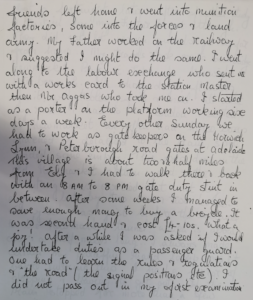 friends left home & went into munition
factories, some into the forces & land
army. My Father worked on the railway
& suggested I might do the same. I went
along to the labour exchange who sent us
with a works card to the station master
then Mr Aggas who took me on. I started
as a porter on the platform working six
days a week. Every other Sunday we
had to work as gate keepers on the
Lynn, & Peterborough road gates at Adelaide
This village is about two & half miles
from Ely & I had to walk there & back
with an 8 AM to 8 PM gate duty stint in
between. After some weeks I managed to
save enough money to buy a bicycle. It
was second hand & cost £4-10s. What a
joy! after a while I was asked if I would
undertake duties as a passenger guard.
One had to learn the rules & regulations
& "the road" (the signal positions etc). I
did not pass out in my first examination